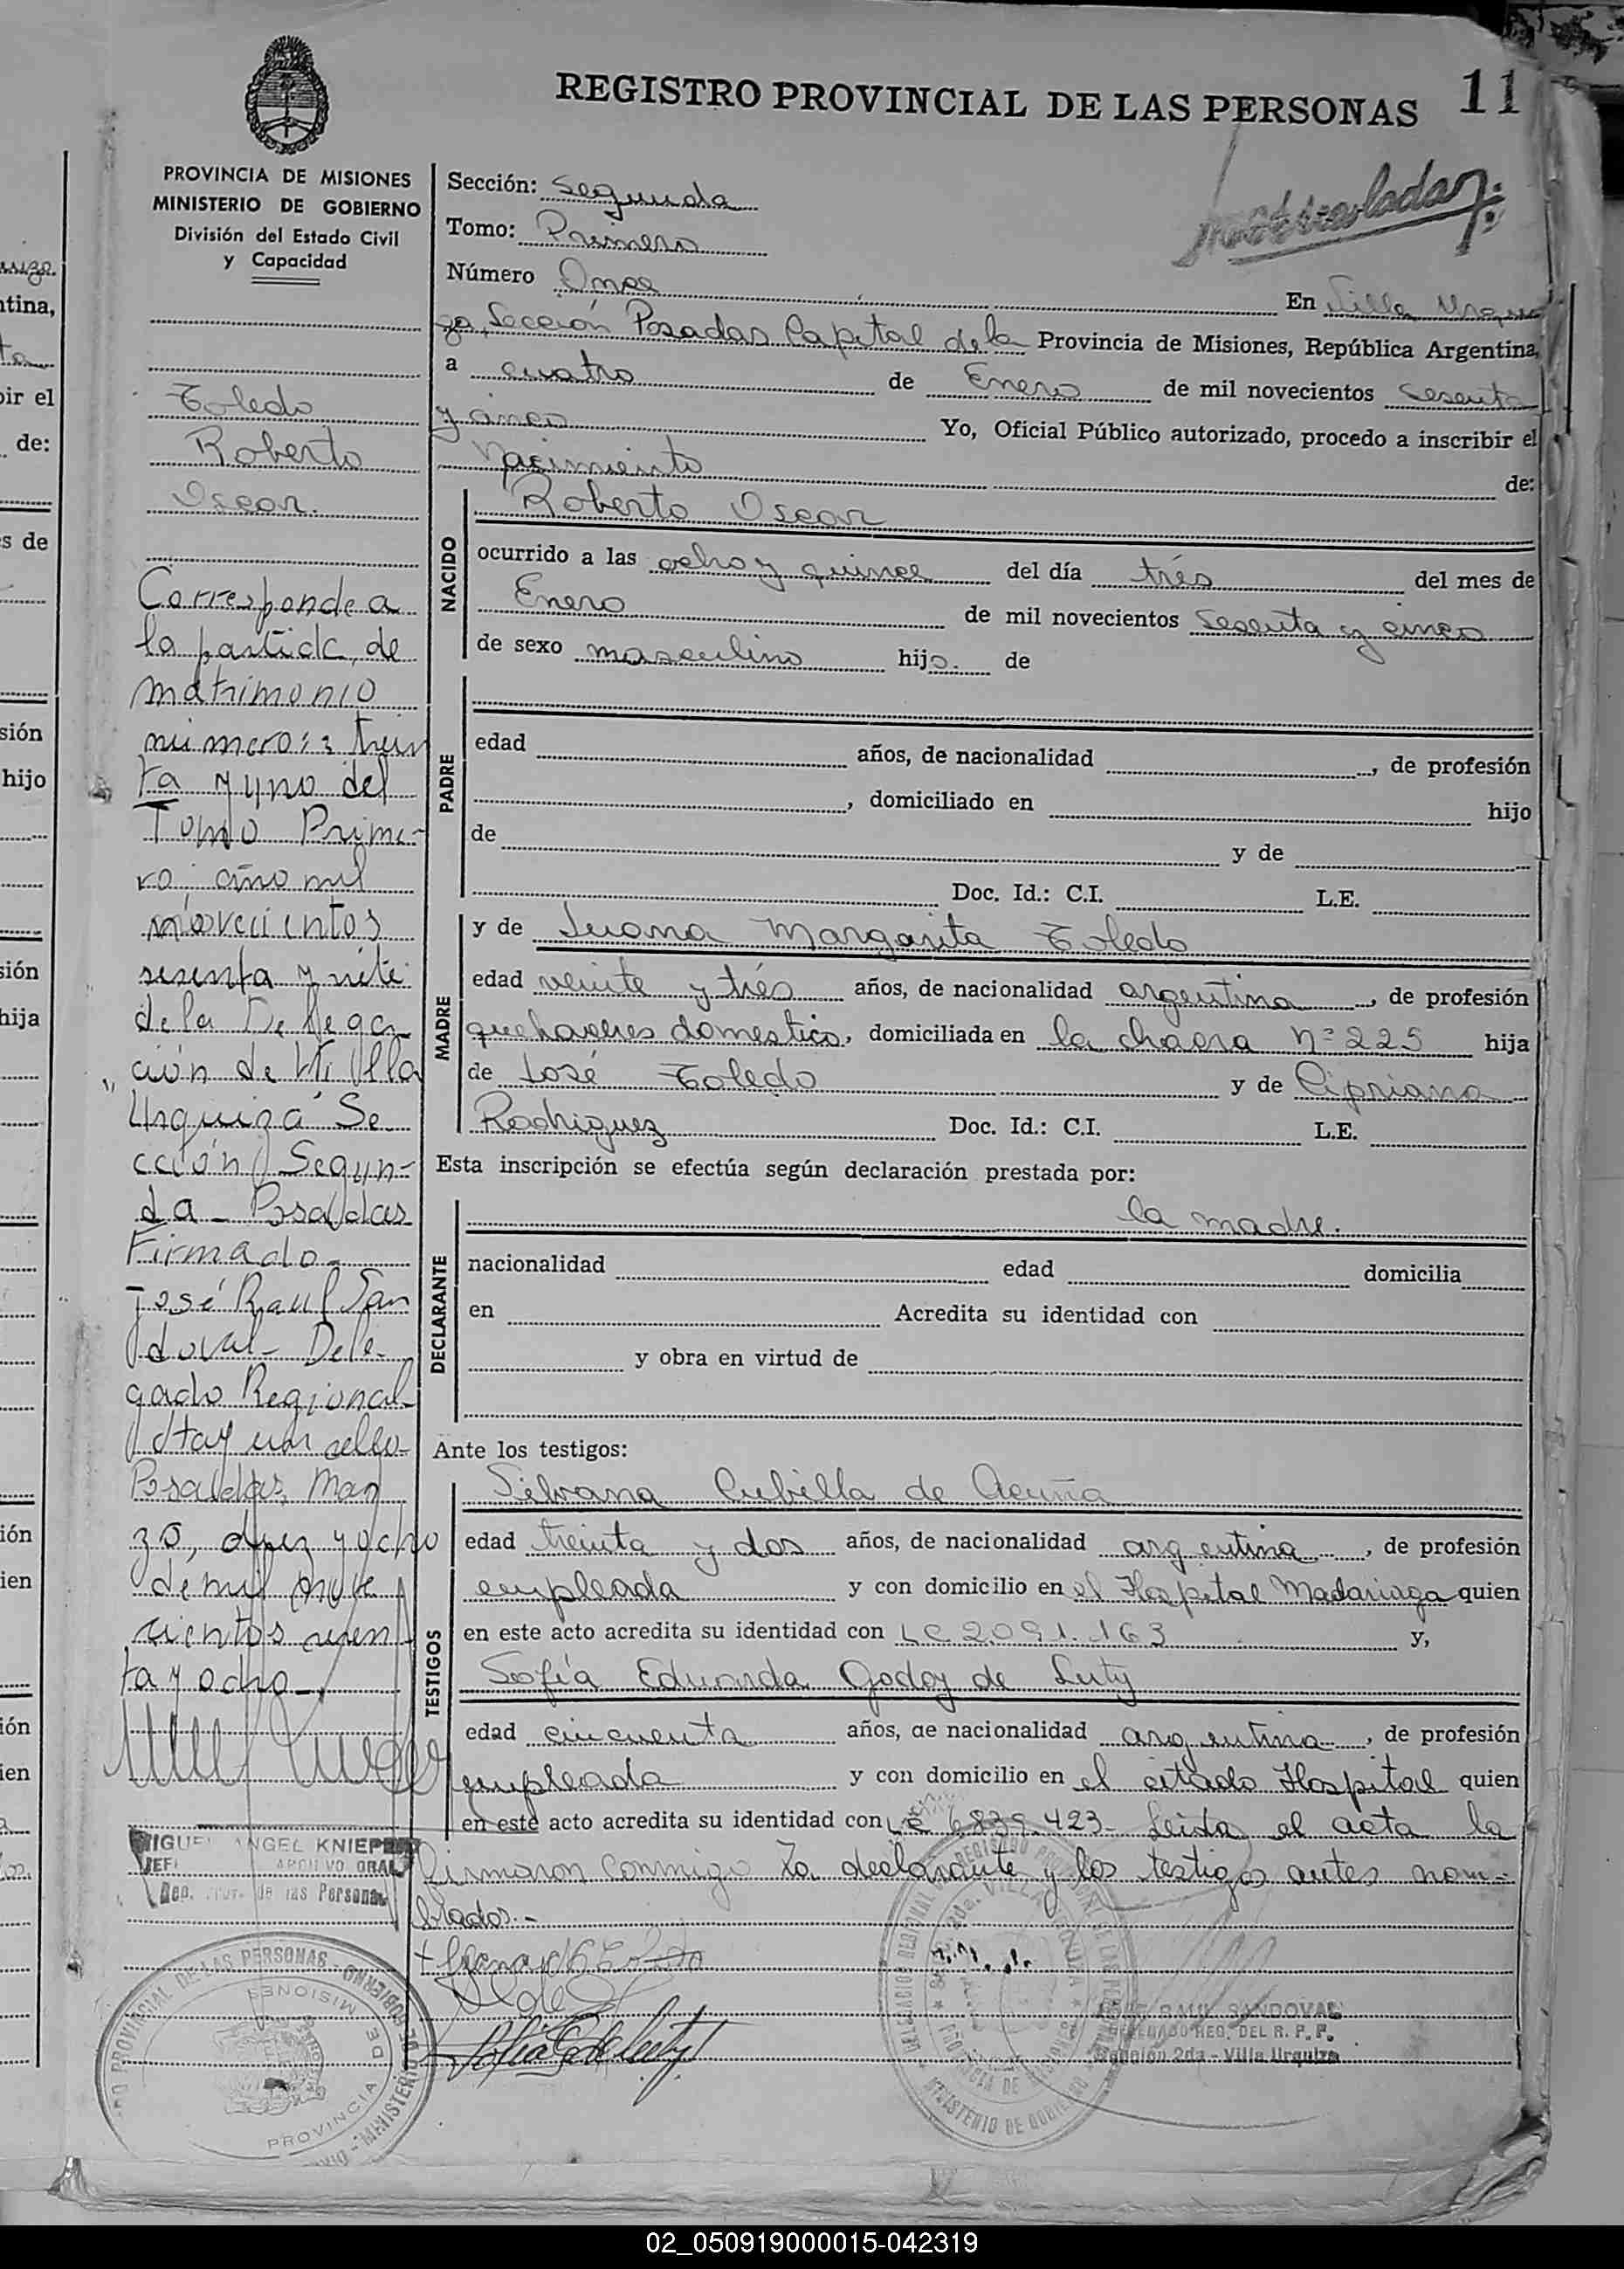 REGISTRO PROVINCIAL DE LAS PERSONAS 11
PROVINCIA DE MISIONES
MINISTERIO DE GOBIERNO
División del Estado Civil
y Capacidad
Toledo
Roberto
Oscar.
Corresponde a
la partida de
matrimonio
número: trein
ta y uno del
Tomo Prime-
ro año mil
novecientos
sesenta y siete
de la Delega
ción de Villa
Urquiza Se
cción Segun-
da - Posadas
Firmado -
José Raul San
doval - Dele-
gado Regional
Hay un sello-
Posadas, Mar
zo, diez y ocho
de mil nove
cientos seten
ta y ocho -
MIGUEL ANGEL KNIEP
JEFE ARCHIVO GRAL
Rep. Prov. de las Personas
Sección: Segunda
Tomo: Primero
Número Once
En Villa Urqui
za, Sección Posadas Capital de la Provincia de Misiones, República Argentina,
a cuatro de Enero de mil novecientos sesenta
y cinco Yo, Oficial Público autorizado, procedo a inscribir el
Nacimiento de:
NACIDO
Roberto Oscar
ocurrido a las ocho y quince del día trés del mes de
Enero de mil novecientos sesenta y cinco
de sexo masculino hijo. de
PADRE
edad años, de nacionalidad , de profesión
, domiciliado en hijo
de y de
Doc. Id.: C.I. L.E.
MADRE
y de Juana Margarita Toledo
edad veinte y trés años, de nacionalidad argentina , de profesión
quehaceres domestico, domiciliada en la chacra Nº 225 hija
de José Toledo y de Cipriana
Rodriguez Doc. Id.: C.I. L.E.
Esta inscripción se efectúa según declaración prestada por:
DECLARANTE
la madre.
nacionalidad edad domicilia
en Acredita su identidad con
y obra en virtud de
Ante los testigos:
TESTIGOS
Silvana Cubilla de Acuña
edad treinta y dos años, de nacionalidad argentina , de profesión
empleada y con domicilio en el Hospital Madariaga quien
en este acto acredita su identidad con LC 2.091.163 y,
Sofía Eduarda Godoy de Luty
edad cincuenta años, de nacionalidad argentina , de profesión
empleada y con domicilio en el citado Hospital quien
en este acto acredita su identidad con LC 6839.423- Leida el acta la
firmaron conmigo la declarante y los testigos antes nom-
brados.-
JOSE RAUL SANDOVAL
DELEGADO REG. DEL R. P. P.
Sección 2da - Villa Urquiza
02_050919000015-042319